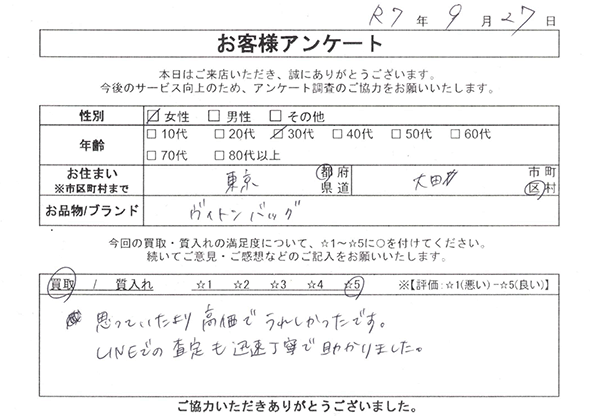 R7年 9月27日
お客様アンケート
本日はご来店いただき、誠にありがとうございます。
今後のサービス向上のため、アンケート調査のご協力をお願いいたします。
性別 ☑女性 □男性 □その他
年齢 □10代 □20代 ☑30代 □40代 □50代 □60代
□70代 □80代以上
お住まい ※市区町村まで 東京 都府県道 大田 市町区村
お品物/ブランド ヴィトンバッグ
今回の買取・質入れの満足度について、☆1～☆5に○を付けてください。
続いてご意見・ご感想などのご記入をお願いいたします。
買取 / 質入れ ☆1 ☆2 ☆3 ☆4 ☆5 ※【評価:☆1(悪い)-☆5(良い)】
思っていたより高価でうれしかったです。
LINEでの査定も迅速丁寧で助かりました。
ご協力いただきありがとうございました。